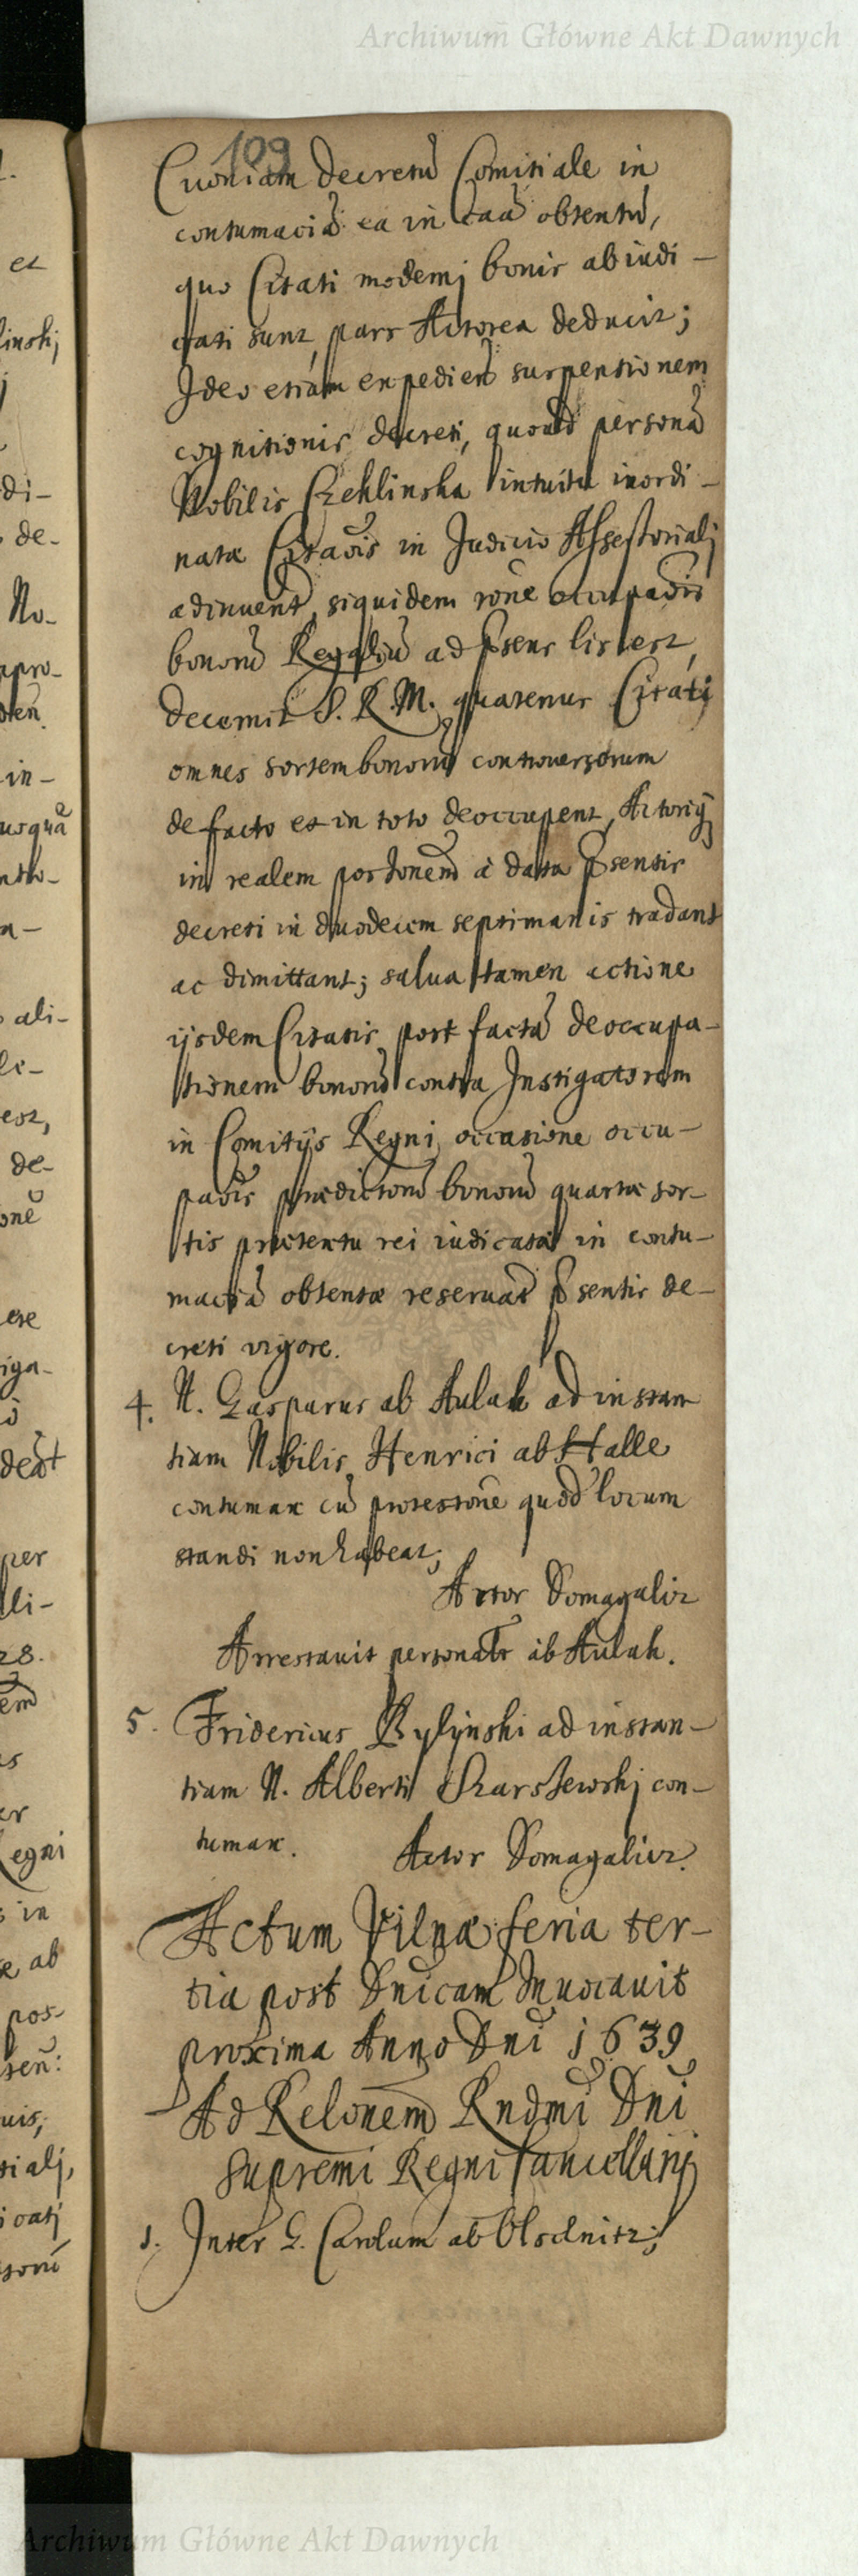 Archiwum Główne Akt Dawnych
109
Cuoniam decretũ Comitiale in
contumaciã ea in caã obtentũ,
quo Citati moderni bonis abiudi-
cati sunt, pars Actorea deducit;
Ideo etiam expedien suspensionem
cognitionis decreti, quoad personã
Nobilis intuitu inordi-
natæ Citaõis in Judicio Assessoriali
adinuent, siquidem rõne occupaõis
bonorũ Regaliũ ad p͂sens lis est,
decernit S. R. M. quatenus Citati
omnes sortem bonorũ controuersorum
de facto et in toto deoccupent, Actorij
in realem possionem à data p͂sentis
decreti in duodecim septimanis tradant
ac dimittant; salua tamen actione
ijsdem Citatis post factã deoccupa-
tionem bonorũ contra Instigatorem
in Comitijs Regni, occasione occu-
paõis prædictorũ bonorũ quartæ sor-
tis prætextu rei iudicatæ in contu-
maciã obtentæ reseruat p͂sentis de-
creti vigore.
4. N. Gasparus ab Aulak ad instan
tiam Nobilis Henrici ab Halle
contumax cũ protestone quod locum
standi non habeat;
Actor Domagalicz
Arrestauit personatr ab Aulak.
5. Fridericus Bylynski ad instan-
tiam N. Alberti Skarszewskj con-
tumax. Actor Domagalicz.
Actum Vilnæ feria ter-
tia post Dnicam Inuocauit
proxima Anno Dni 1639
Ad Relonem Rndmi Dni
Supremi Regni Cancellarij
1. Inter G. Carolum ab
et
di-
de-
No-
in-
ali-
est,
de-
per
li-
28.
egni
in
ab
pos-
Archiwum Główne Akt Dawnych